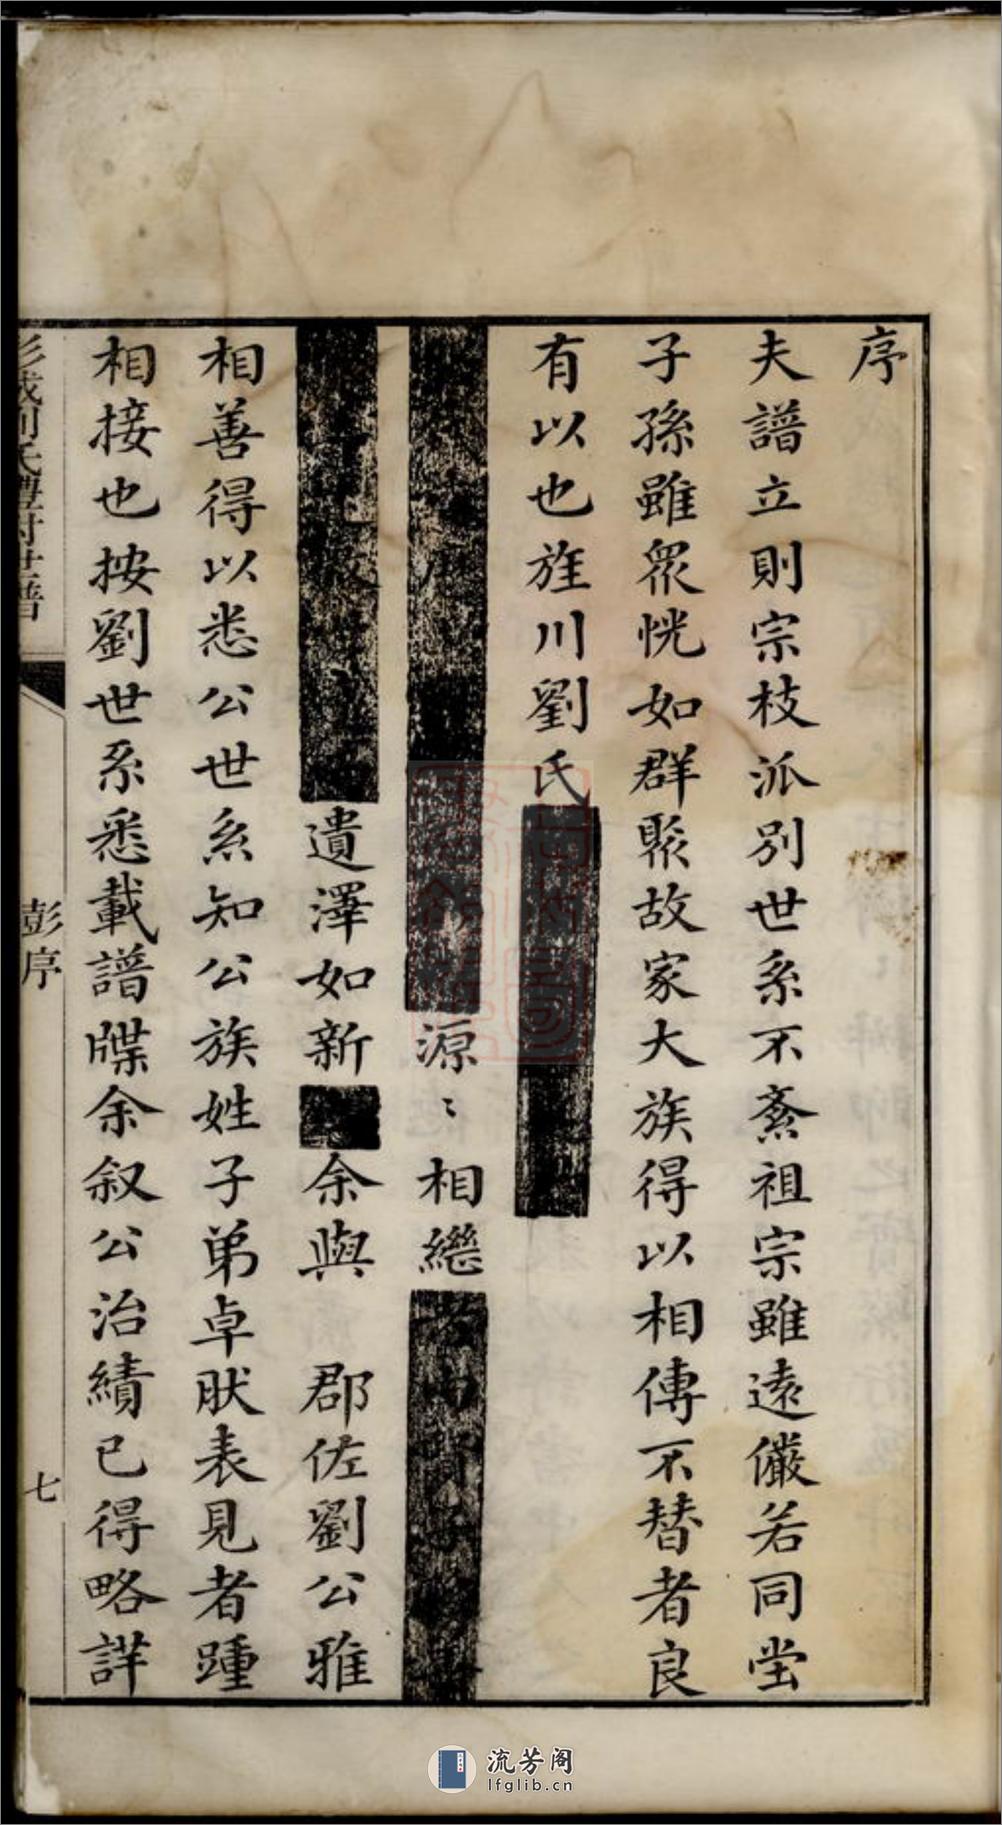 序
夫譜立則宗枝派別世系不紊祖宗雖遠儼若同堂
子孫雖眾恍如群聚故家大族得以相傳不替者良
有以也旌川劉氏
源〻相繼
遺澤如新余與　郡佐劉公雅
相善得以悉公世系知公族姓子弟卓肰表見者踵
相接也按劉世系悉載譜牒余叙公治績已得略詳
彭城劉氏豐村世譜
彭序
七
流芳阁
lfglib.cn